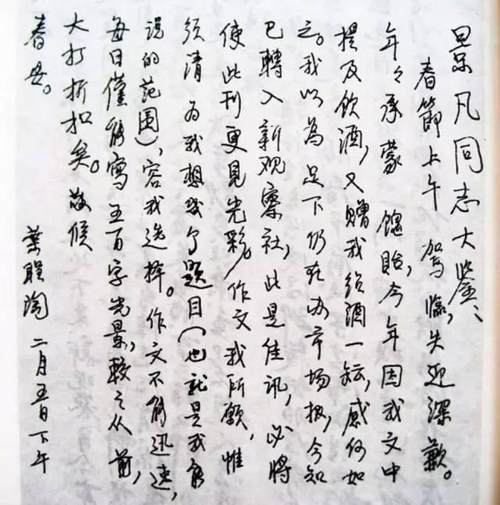 景凡同志大鉴、
春節上午 駕臨，失迎深歉。
年々承蒙 饋貽，今年因我文中
提及飲酒，又贈我紹酒一罈，感何如
之。我以為 足下仍在办市场报，今知
已轉入新观察社，此是佳讯，必將
使此刊更見光彩。作文我所願，惟
须清为我想幾个題目（也就是我能
说的范围），容我选择。作文不能迅速，
每日僅能寫五百字光景，較之从前，
大打折扣矣。敬候
春安。
葉聖陶 二月五日下午